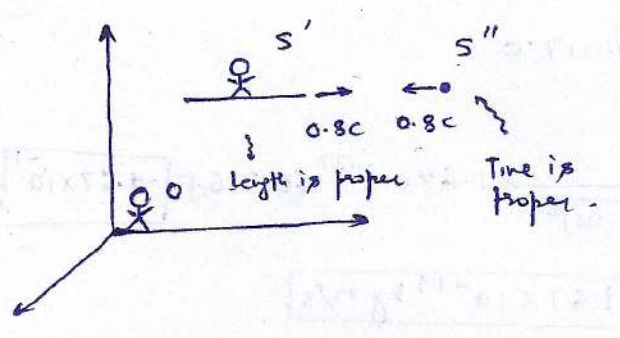 S'
S"
0.8c 0.8c
O
length is proper
Time is
proper.